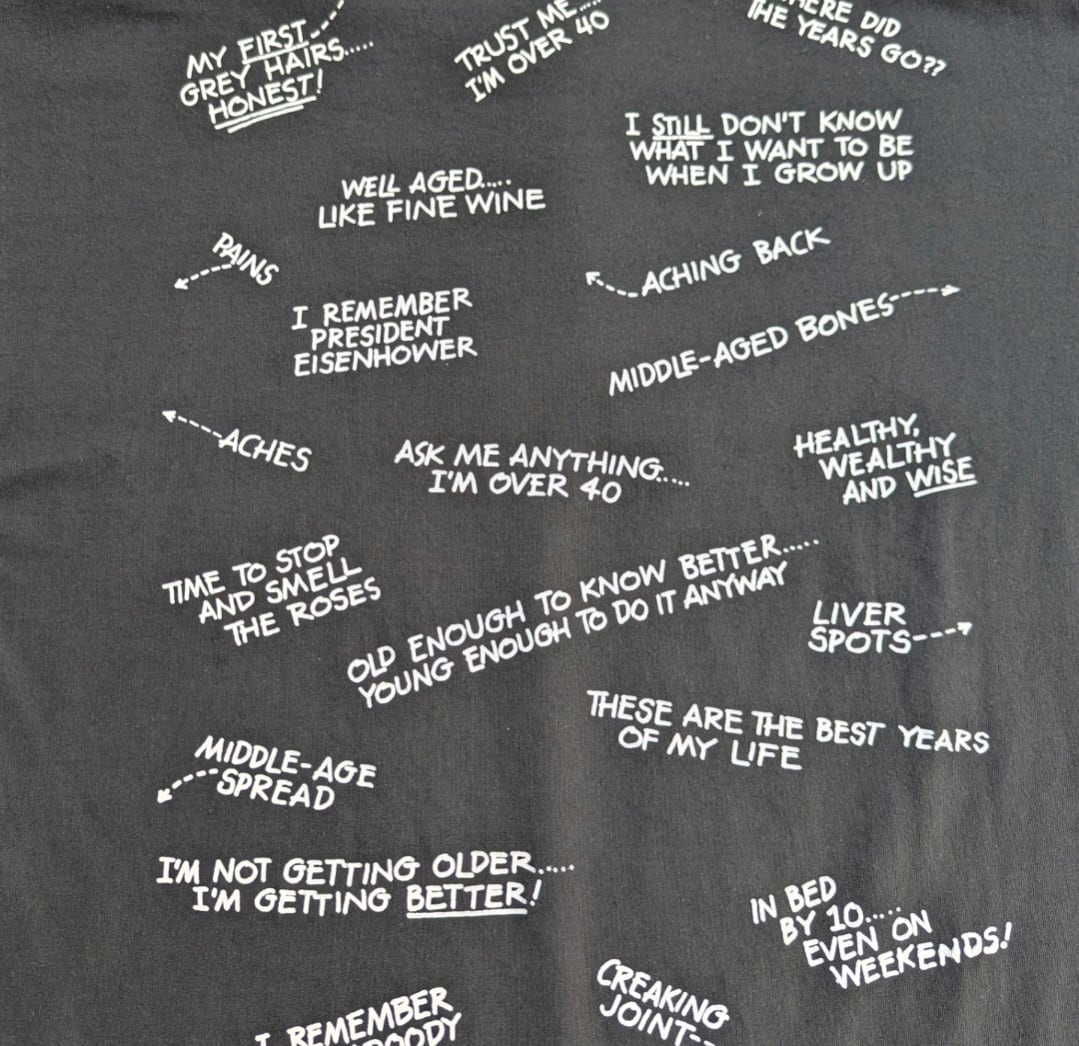 MY FIRST
GREY HAIRS.....
HONEST!
TRUST ME....
I'M OVER 40
DID
THE YEARS GO??
I STILL DON'T KNOW
WHAT I WANT TO BE
WHEN I GROW UP
WELL AGED.....
LIKE FINE WINE
PAINS
ACHING BACK
I REMEMBER
PRESIDENT
EISENHOWER
MIDDLE-AGED BONES
ACHES
ASK ME ANYTHING.....
I'M OVER 40
HEALTHY,
WEALTHY
AND WISE
TIME TO STOP
AND SMELL
THE ROSES
OLD ENOUGH TO KNOW BETTER.....
YOUNG ENOUGH TO DO IT ANYWAY
LIVER
SPOTS
THESE ARE THE BEST YEARS
OF MY LIFE
MIDDLE-AGE
SPREAD
I'M NOT GETTING OLDER.....
I'M GETTING BETTER!
IN BED
BY 10.....
EVEN ON
WEEKENDS!
CREAKING
JOINT
I REMEMBER